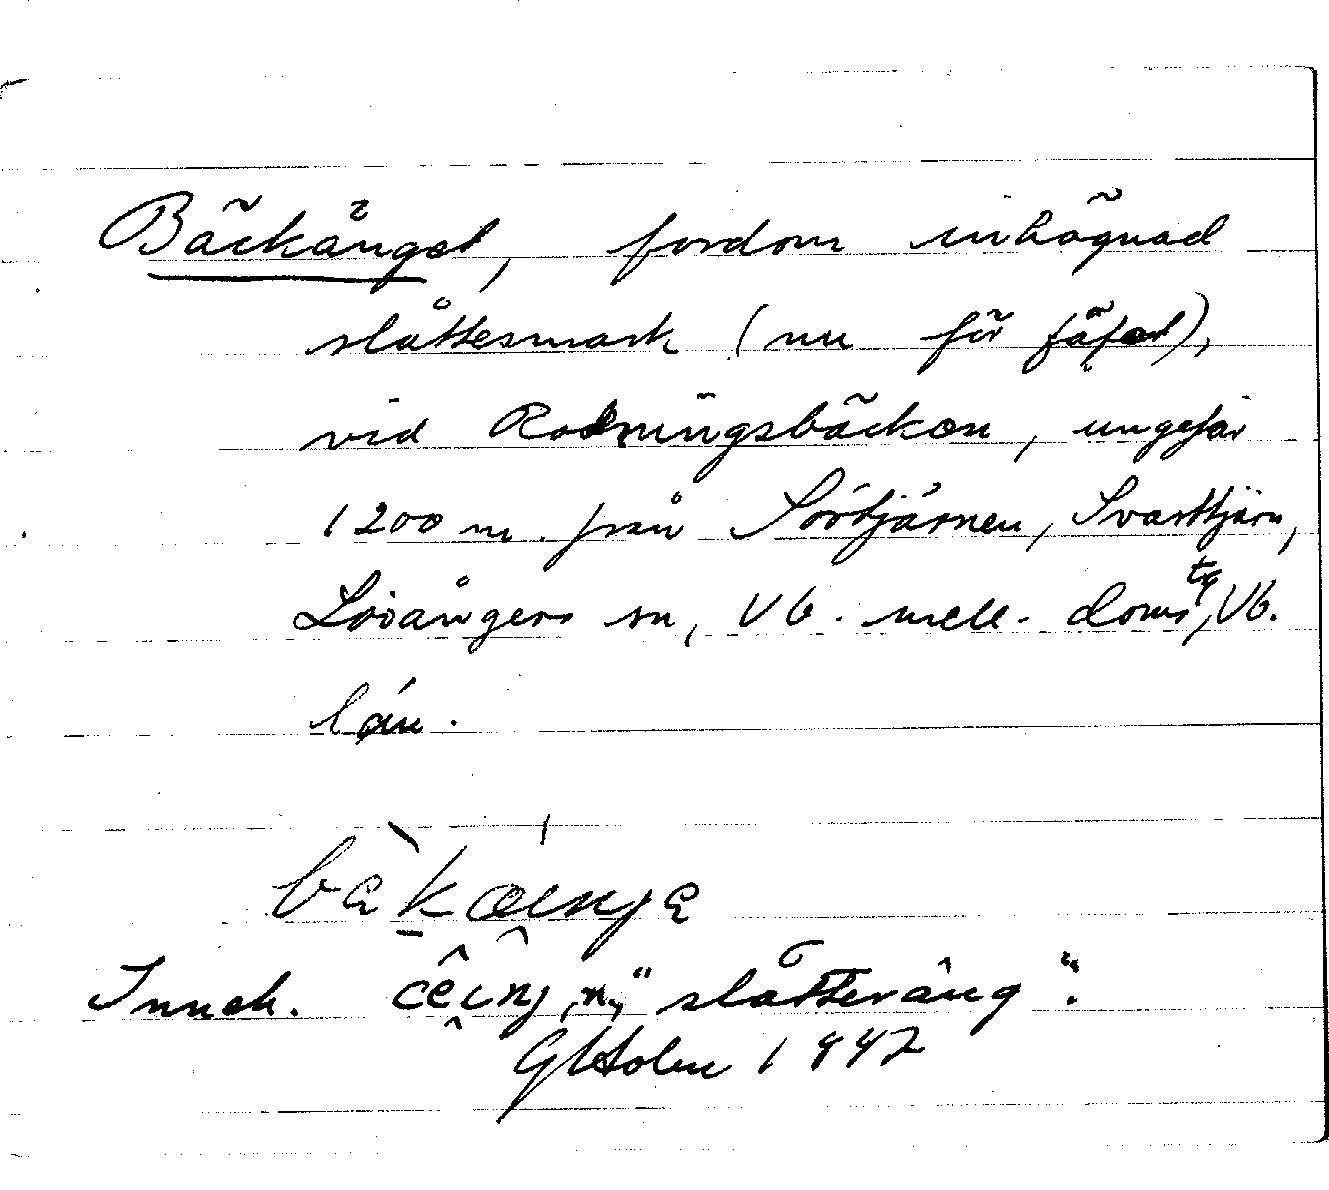 Bäckänget, fordom inhägnad
slåttesmark (nu för fäfot),
vid Rodningsbäcken, ungefär
1200 m. från Sörtjärnen, Svarttjärn,
Lövångers sn, Vb. mell. doms tg, Vb.
län.
Inneh. n., "slåtteräng".
GHolm 1942